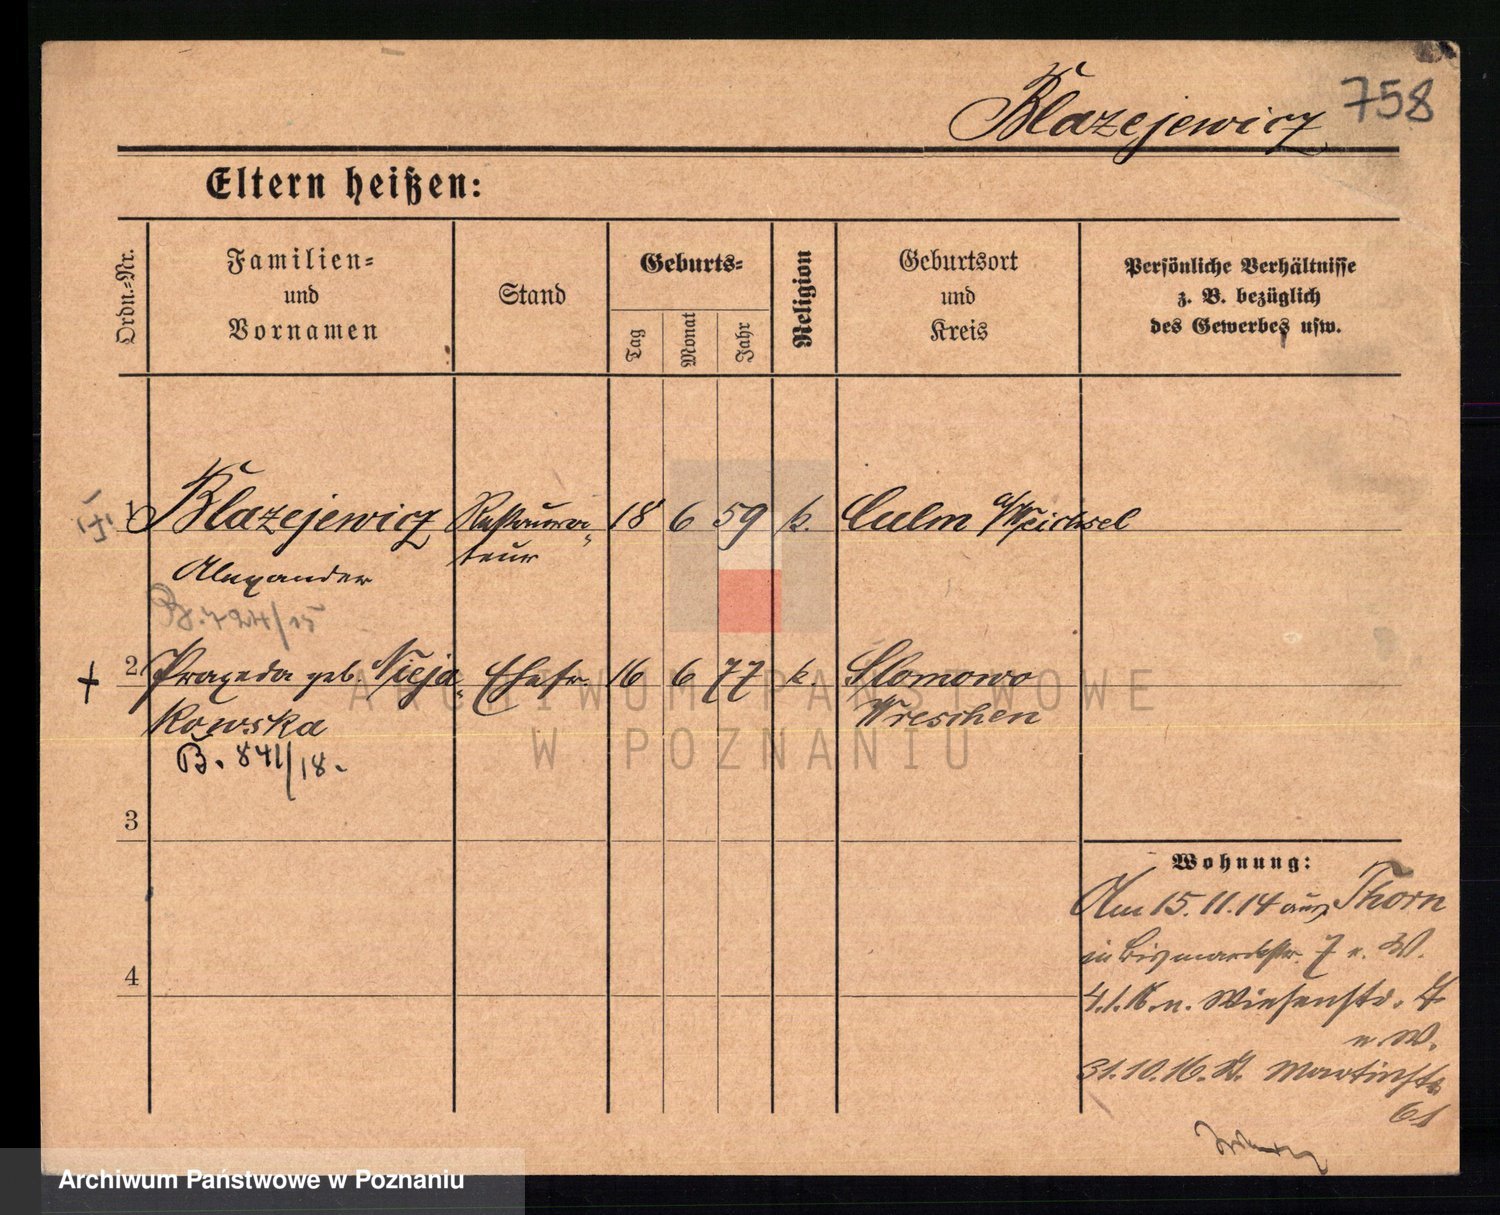 Blazejewicz 758
Eltern heißen:
Ordn.-Nr.
Familien-
und
Vornamen
Stand
Geburts-
Tag
Monat
Jahr
Religion
Geburtsort
und
Kreis
Persönliche Verhältnisse
z. B. bezüglich
des Gewerbes usw.
1 Blazejewicz Restaura- 18 6 59 k. Culm a/Weichsel
Alexander teur
2 Praxeda geb. Nieja- Ehefr. 16 6 77 k. Slomowo
kowska Wreschen
B. 841/18.
3
4
Wohnung:
Am 15.11.14 aus Thorn
in Bismarckstr. 7 n. W.
4.1.16 n. Wiesenstr. 7
n. W.
31.10.16. St. Martinstr.
61
ARCHIWUM PAŃSTWOWE
W POZNANIU
Archiwum Państwowe w Poznaniu